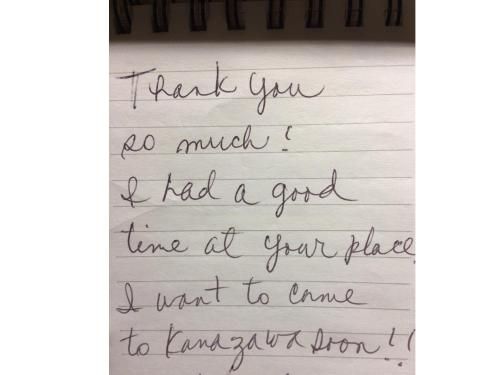 Thank you
so much!
I had a good
time at your place
I want to come
to Kanazawa soon!!